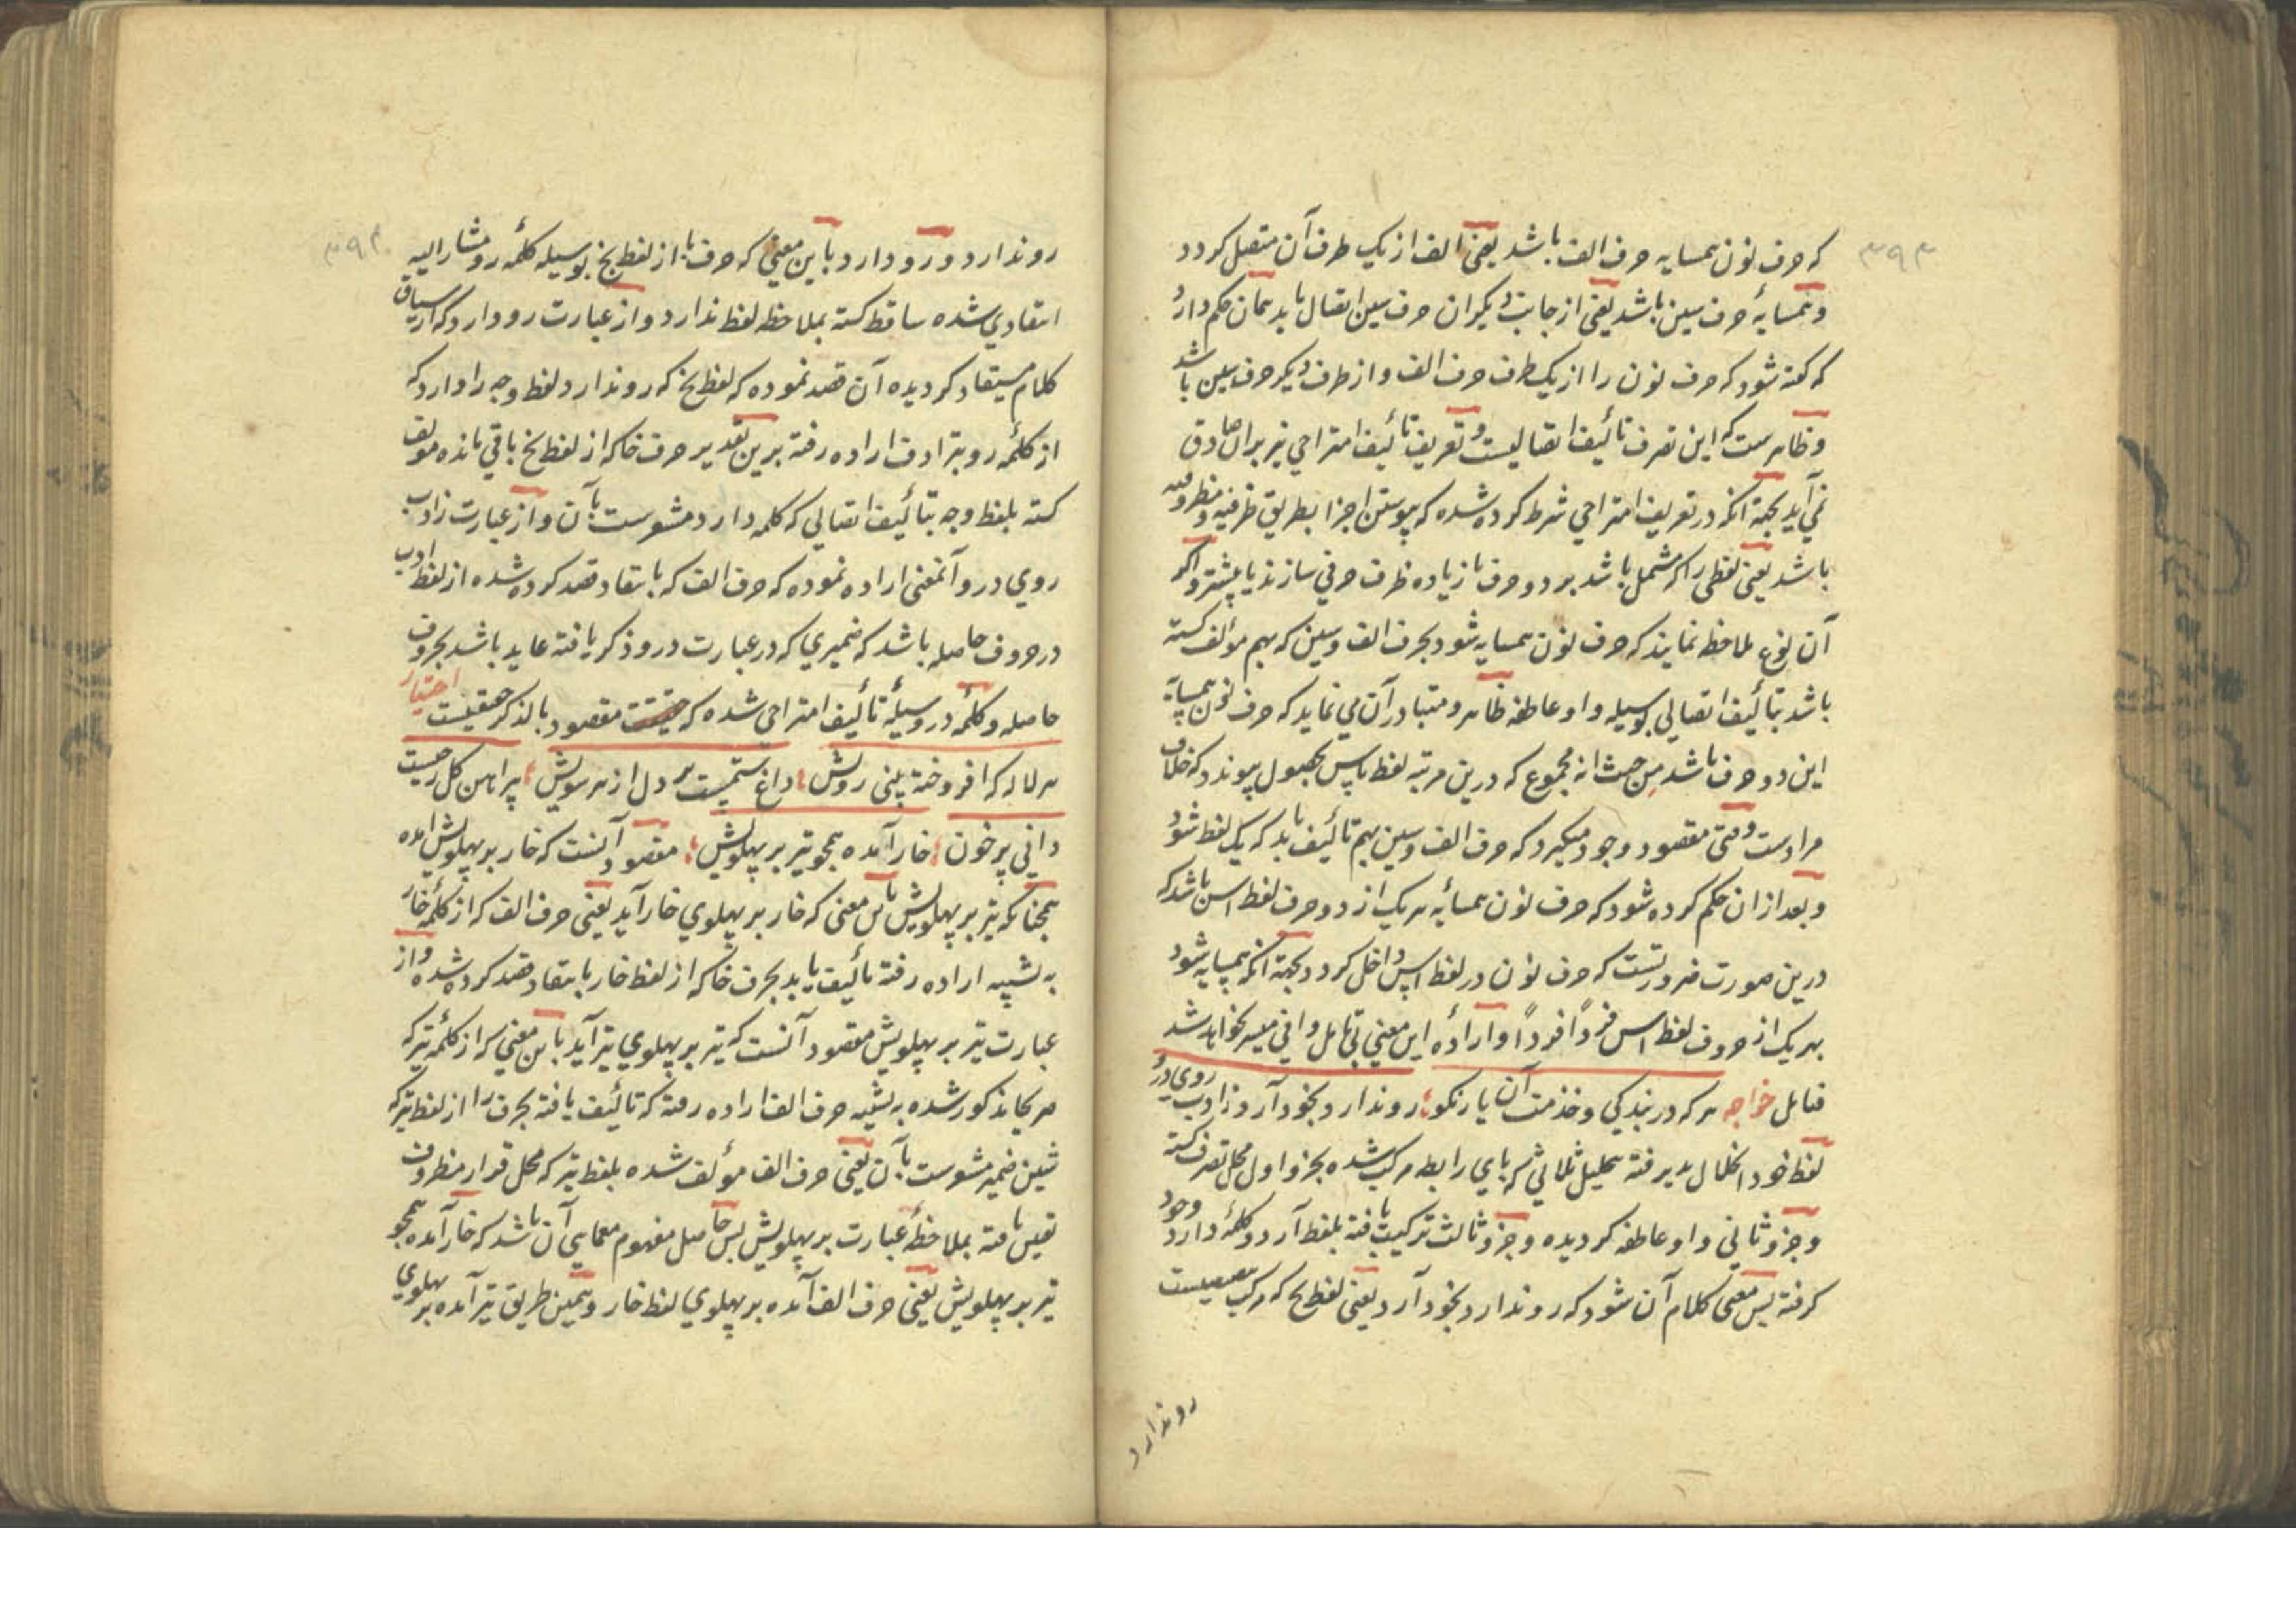 ۳۹۳
که حرف نون همسایه حرف الف باشد یعنی الف از یک طرف آن متصل کردد
و همسایهٔ حرف سین باشد یعنی از جانب دیکر ان حرف سین اتصال یابد همان حکم دارد
که کفته شود که حرف نون را از یک طرف حرف الف و از طرف دیکر حرف سین باشد
و ظاهرست که این تصرف تألیف اتصالیست و تعریف تألیف امتزاجی نیز بران صادق
نمی آید بجهة آنکه در تعریف امتزاجی شرط کرده شده که پیوستن اجزا بطریق ظرفیه و مظروفیه
باشد یعنی لفظی را که مشتمل باشد بر دو حرف یا زیاده ظرف حرفی سازند یا بیشتر و اکر
آن نوع ملاحظه نمایند که حرف نون همسایه شود بحرف الف و سین که بهم مؤلف کشته
باشد بتألیف اتصالی بوسیله واو عاطفه ظاهر و متبادر آن می نماید که حرف نون همسایهٔ
این دو حرف باشد من حیث انه مجموع که درین مرتبه لفظ باس بحصول پیوندد که خلاف
مرادست وقتی مقصود وجود میکیرد که حرف الف و سین بهم تألیف یابد که یک لفظ شود
و بعد از ان حکم کرده شود که حرف نون همسایهٔ هر یک از دو حرف لفظ اس باشد که
درین صورت ضرورتست که حرف نون در لفظ اس داخل کردد بجهة آنکه همسایه شود
بهر یک از حروف لفظ اس فرداً فرداً و ارادهٔ این معنی بی تأمل وافی میسر نخواهد شد
فتأمل خواجه هر که در بندکی و خذمت آن یار نکو؛ رو ندارد بخود آرد ز ادب روی درو
لفظ خود انحلال پذیرفته بتحلیل ثلاثی که بای رابطه مرکب شده بجزو اول محل تصرف کشته
و جزو ثانی واو عاطفه کردیده و جزو ثالث ترکیب یافته بلفظ آرد و کلمهٔ دارد وجود
کرفته پس معنی کلام آن شود که رو ندارد بخود آرد یعنی لفظ بخ که مرکب
رو ندارد
رو ندارد و رو دارد باین معنی که حرف با از لفظ بخ بوسیله کلمهٔ رو مشار الیه
انتقادی شده ساقط کشته بملاحظه لفظ ندارد و از عبارت رو دارد که از سیاق
کلام مستفاد کردیده آن قصد نموده که لفظ بخ که رو ندارد لفظ وجه را دارد که
از کلمهٔ رو بترادف اراده رفته برین تقدیر حرف خا که از لفظ بخ باقی مانده مؤلف
کشته بلفظ وجه بتألیف اتصالی که کلمه دارد مشعرست بآن و از عبارت ز ادب
روی درو آنمعنی اراده نموده که حرف الف که بانتقاد قصد کرده شده از لفظ ادب
در حروف حاصله باشد که ضمیری که در عبارت درو ذکر یافته عاید باشد بحروف
حاصله و کلمهٔ در وسیلهٔ تألیف امتزاجی شده که مقصود بالذکر حقیقیست اختیار
هر لاله که افروخته بینی رویش؛ داغ ستمیست بر دل از هر سویش؛ پیراهن کل ز چیست
دانی پرخون؛ خار آمده همچو تیر بر پهلویش؛ مقصود آنست که خار بر پهلویش آمده
همچنانکه تیر بر پهلویش باین معنی که خار بر پهلوی خار آید یعنی حرف الف که از کلمهٔ خار
به تشبیه اراده رفته تألیف یابد بحرف خا که از لفظ خار بانتقاد قصد کرده شده و از
عبارت تیر بر پهلویش مقصود آنست که تیر بر پهلوی تیر آید باین معنی که از کلمهٔ تیر که
صریحا مذکور شده به تشبیه حرف الف اراده رفته که تألیف یافته بحرف را از لفظ تیر که
شین ضمیر مشعرست بآن یعنی حرف الف مؤلف شده بلفظ تیر که محل قرار مظروف
تعیین یافته بملاحظهٔ عبارت بر پهلویش پس حاصل مفهوم معمایی آن باشد که خار آمده همچو
تیر بر پهلویش یعنی حرف الف آمده بر پهلوی لفظ خار و بهمین طریق تیر آمده بر پهلوی